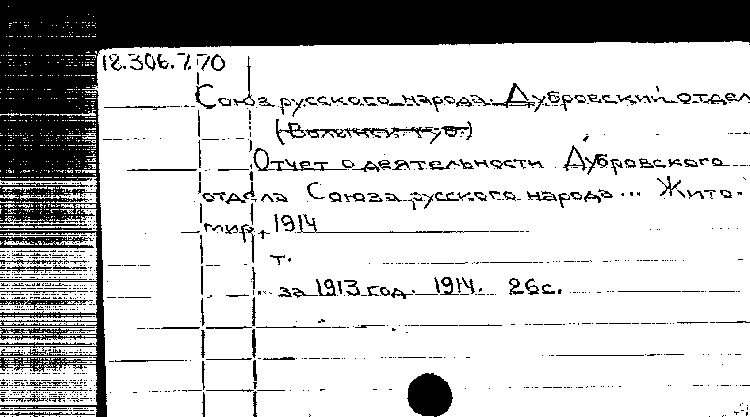 18.306.7.70
Союз русского народа. Дубровский отдел
Отчет о деятельности Дубровского
отдела Союза русского народа... Жито-
мир, 1914
т.
за 1913 год. 1914. 26с.